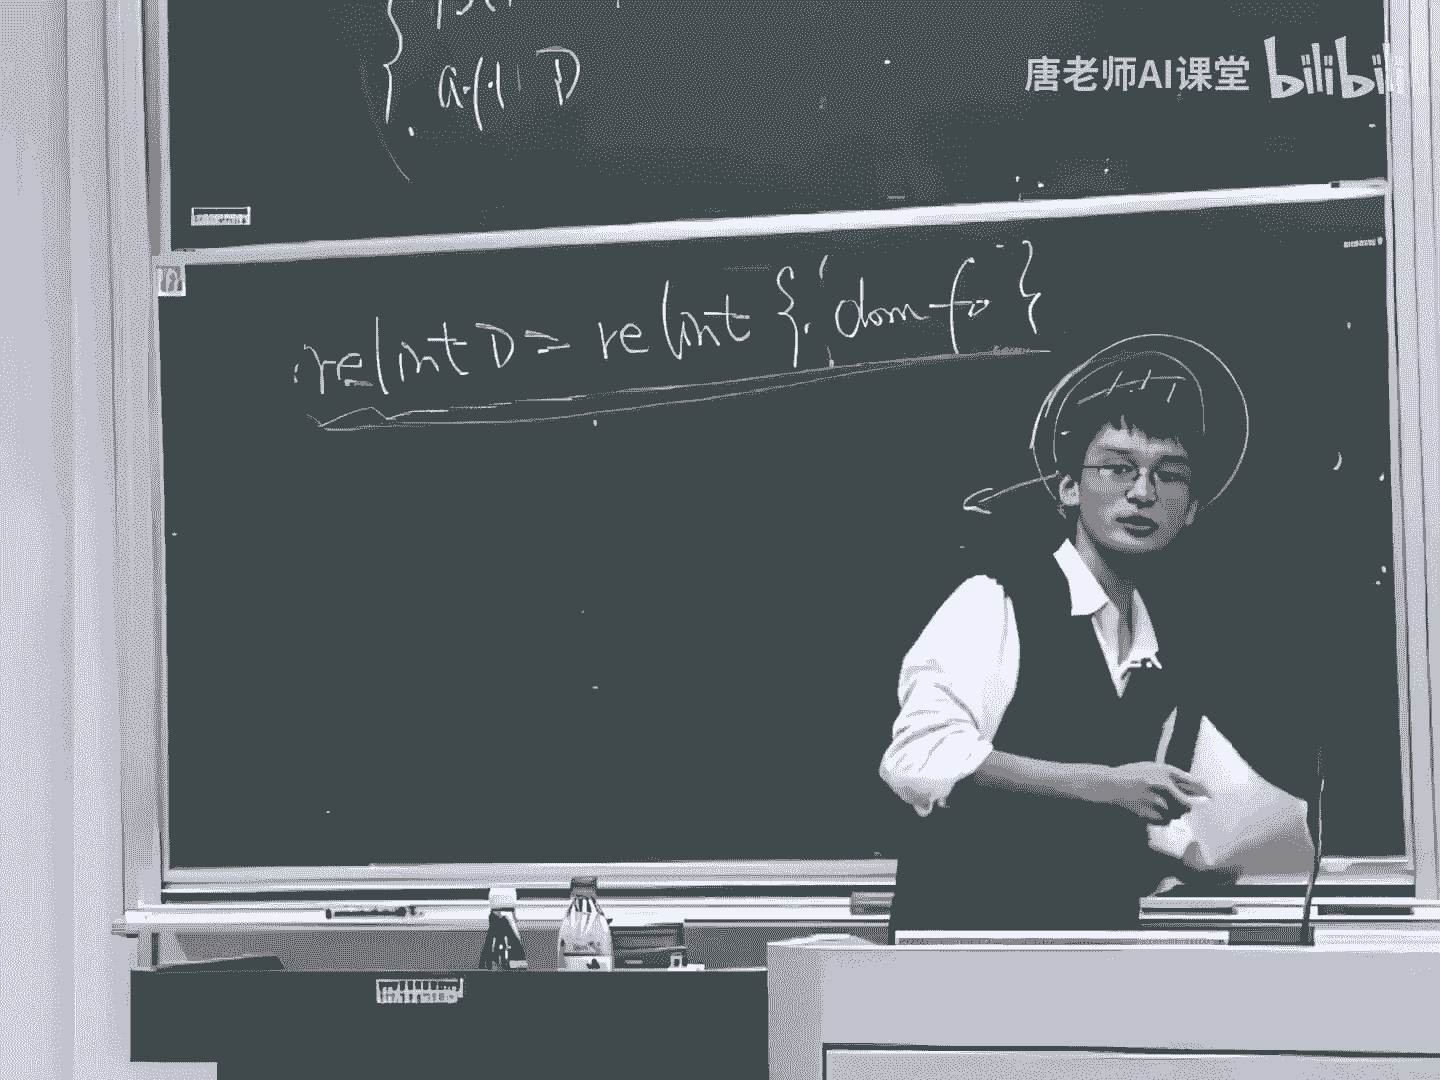 唐老师AI课堂 bilibili
aff D
relint D = relint { dom f₀ }